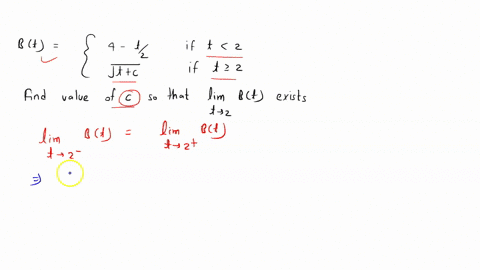 B(t) = { 4 - t/2 if t < 2
√t+c if t ≥ 2
Find value of c so that lim t→2 B(t) exists
lim t→2⁻ B(t) = lim t→2⁺ B(t)
⇒